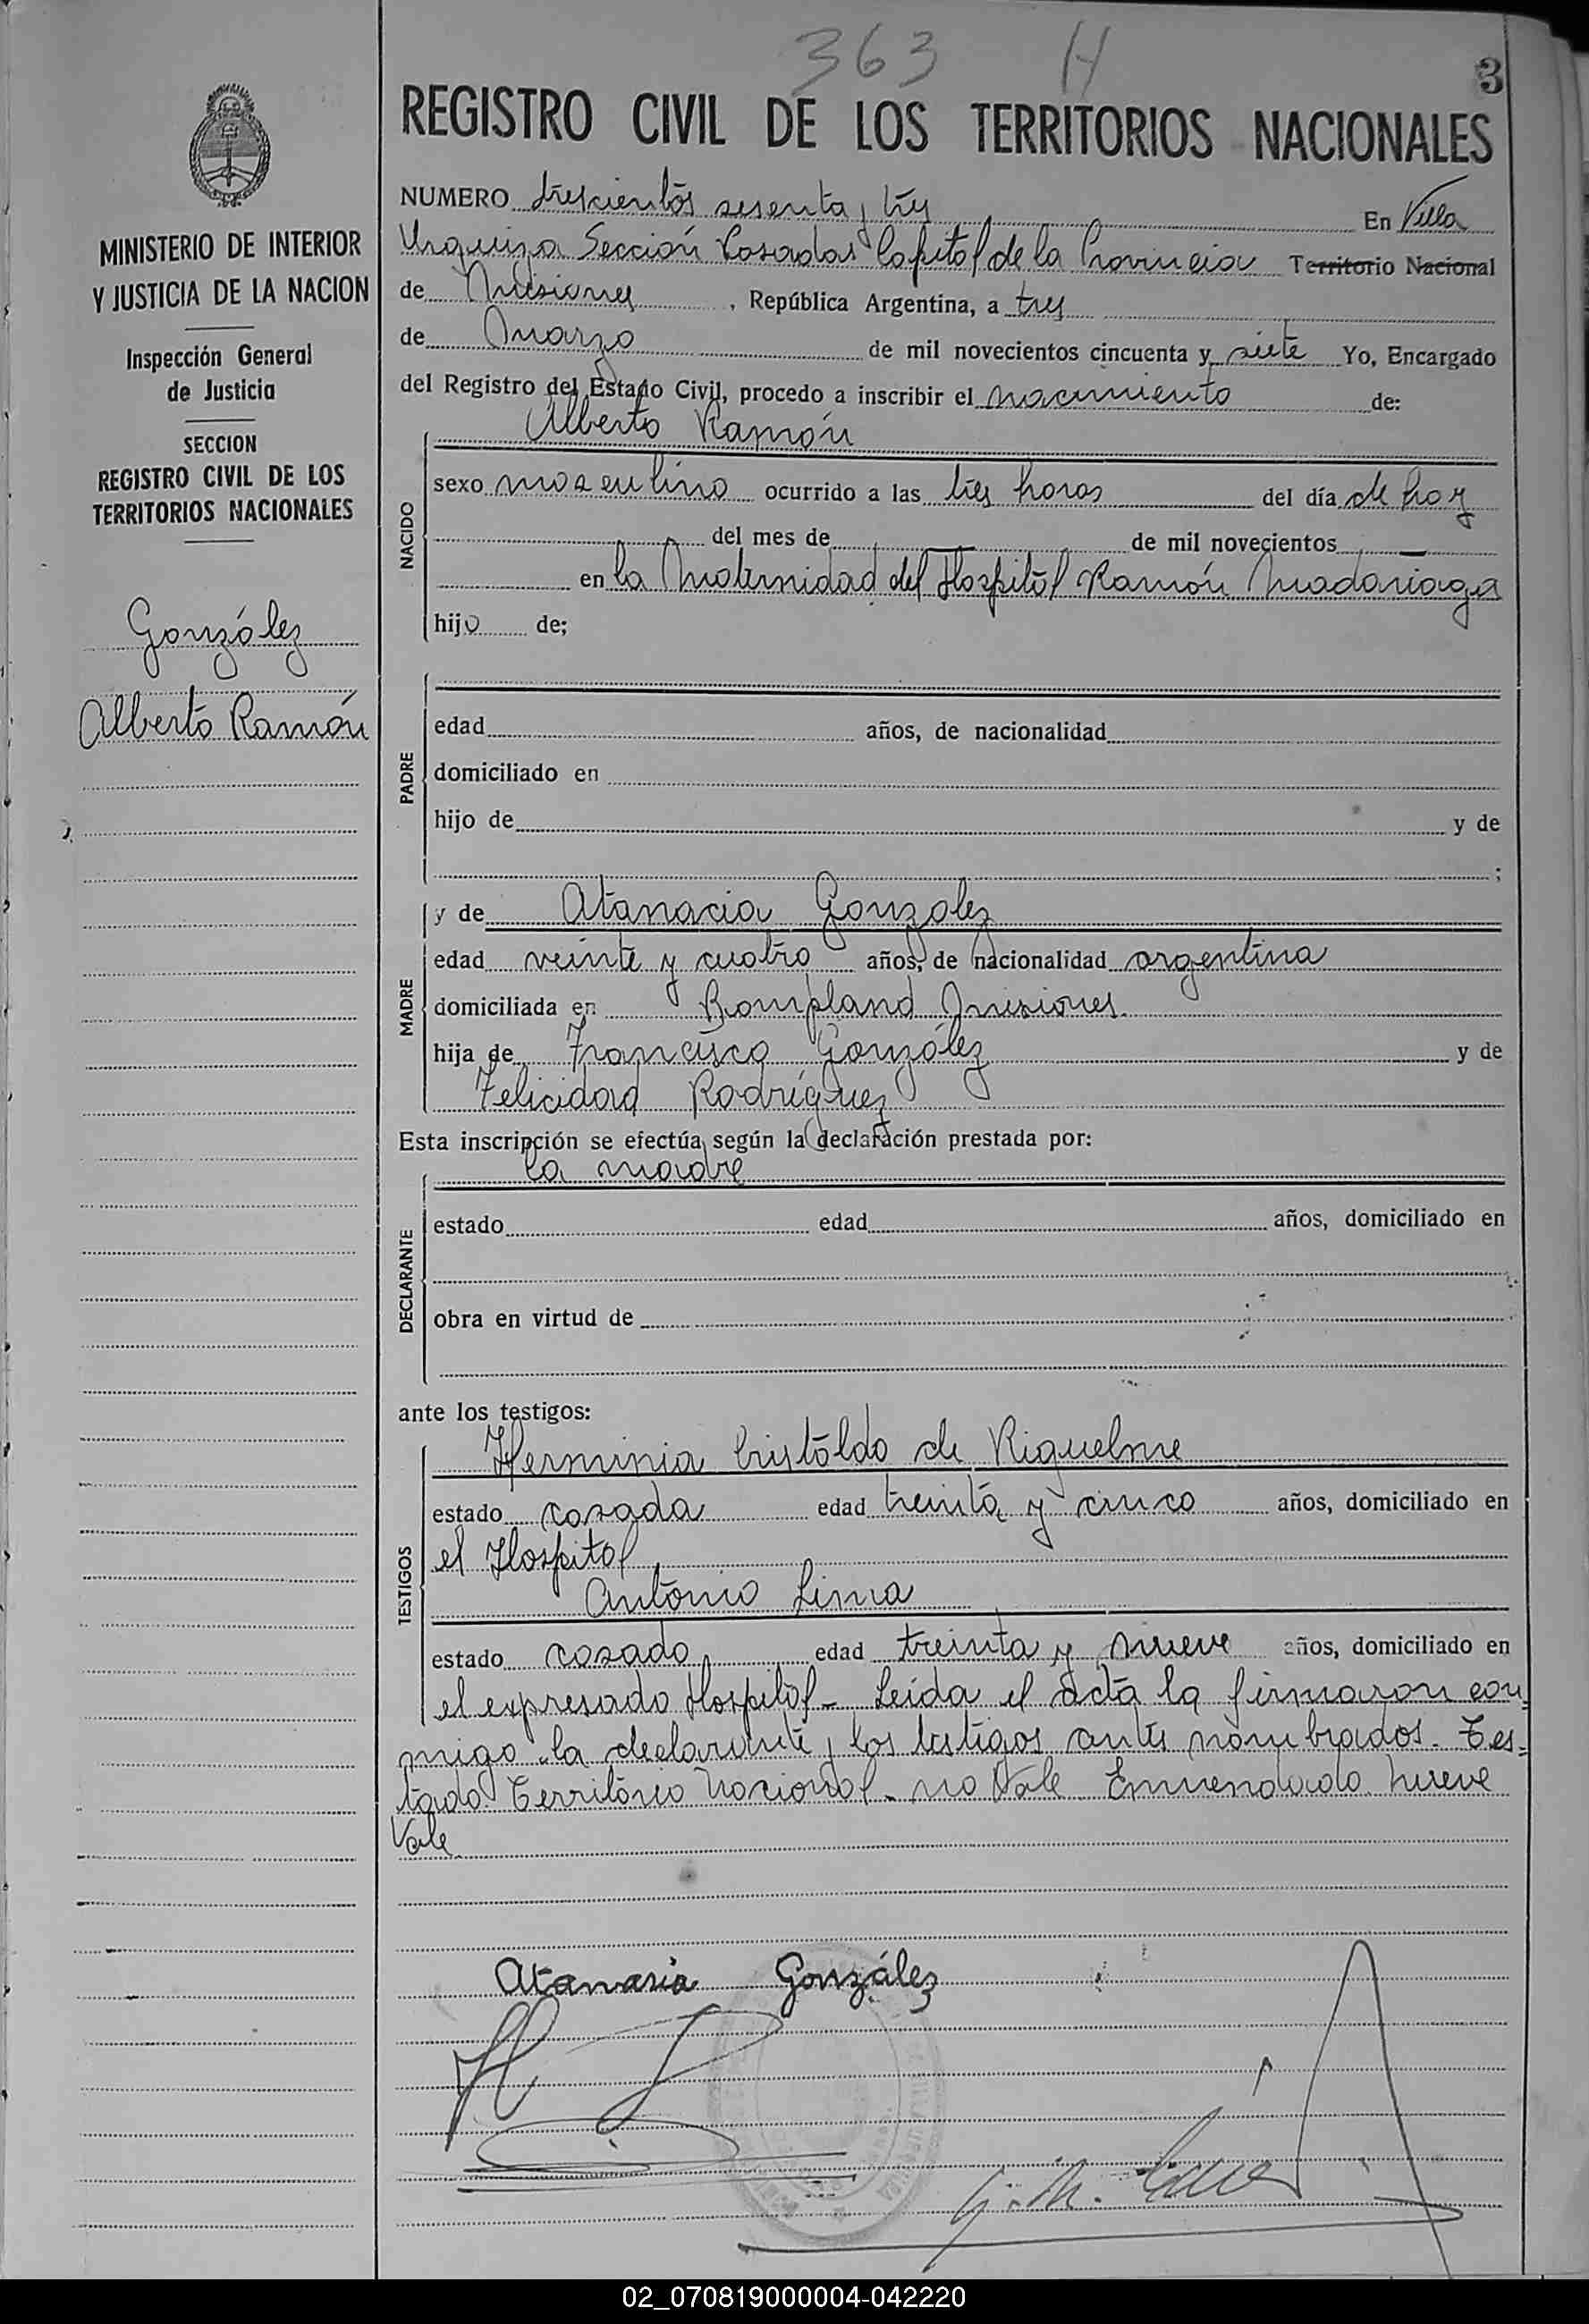 363 H
3
REGISTRO CIVIL DE LOS TERRITORIOS NACIONALES
MINISTERIO DE INTERIOR
Y JUSTICIA DE LA NACION
Inspección General
de Justicia
SECCION
REGISTRO CIVIL DE LOS
TERRITORIOS NACIONALES
González
Alberto Ramón
NUMERO trescientos sesenta y tres En Villa
Urquiza Sección Posadas Capital de la Provincia Territorio Nacional
de Misiones, República Argentina, a tres
de Marzo de mil novecientos cincuenta y siete Yo, Encargado
del Registro del Estado Civil, procedo a inscribir el nacimiento de:
Alberto Ramón
NACIDO
sexo masculino ocurrido a las tres horas del día de hoy
del mes de de mil novecientos
en la Maternidad del Hospital Ramón Madariaga
hijo de;
PADRE
edad años, de nacionalidad
domiciliado en
hijo de y de
;
MADRE
y de Atanacia Gonzalez
edad veinte y cuatro años, de nacionalidad argentina
domiciliada en Bompland Misiones.
hija de Francisco González y de
Felicidad Rodríguez
Esta inscripción se efectúa según la declaración prestada por:
la madre
DECLARANTE
estado edad años, domiciliado en
obra en virtud de
ante los testigos:
TESTIGOS
Herminia Cristaldo de Riquelme
estado casada edad treinta y cinco años, domiciliado en
el Hospital
Antonio Lima
estado casado edad treinta y nueve años, domiciliado en
el expresado Hospital - Leída el acta la firmaron con
migo la declarante y los testigos antes nombrados. Tes-
tado Territorio Nacional - no Vale Enmendado nueve
Vale
Atanasia González
02_070819000004-042220